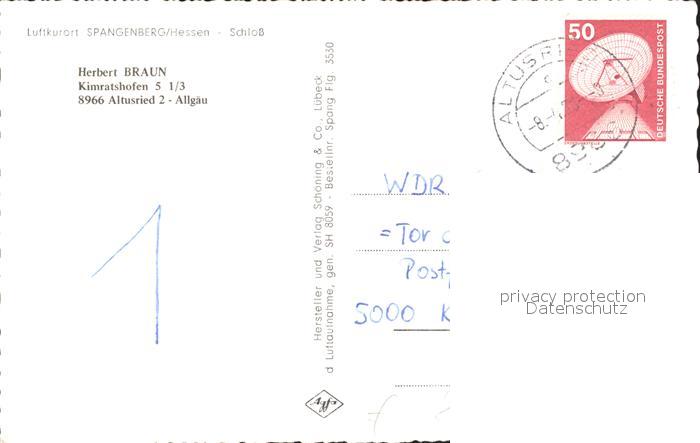 Luftkurort SPANGENBERG/Hessen - Schloß
Herbert BRAUN
Kimratshofen 5 1/3
8966 Altusried 2 - Allgäu
1
Hersteller und Verlag Schöning & Co., Lübeck
d Luftaufnahme, gen. SH 8059 - Bestellnr. Spang Flg 3530
Agfa
50
DEUTSCHE BUNDESPOST
WDR
=Tor
Post-
5000 K
privacy protection
Datenschutz